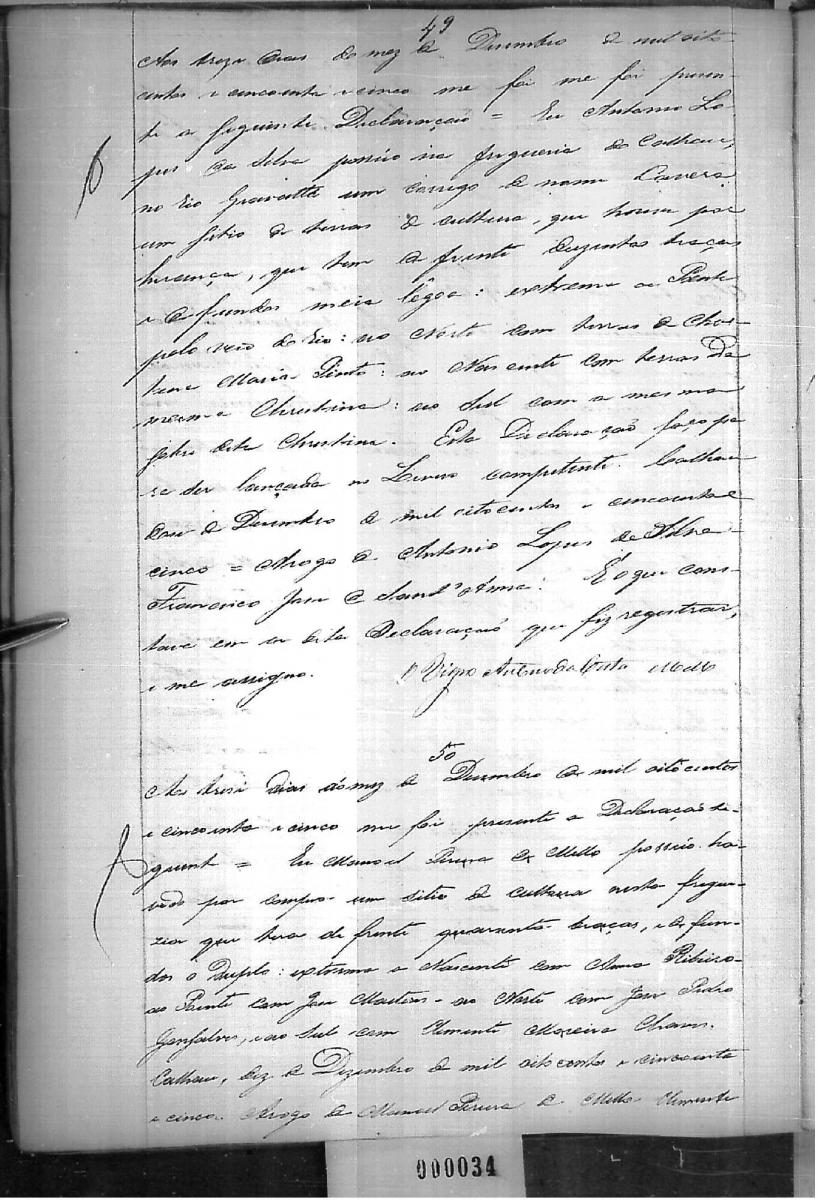 49
Aos treze dias do mez de Desembro de mil oito
centos e cincoenta e cinco me foi me foi presen-
te a seguinte Declaração = Eu Antonio Lo-
pes da Silva possúo na freguesia do
no Rio Gravatta um corrego de nome
um sitio de terras de cultura, que houve por
herança, que tem de frente duzentas braças
e de fundos meia legoa: extrema ao Poente
pelo veio do Rio: ao Norte com terras de Chris-
tina Maria Pinto: ao Nascente com terras da
mesma Christina: ao Sul com a mesma
sobre dita Christina. Esta Declaração faço pa
ra ser lançada no Livro competente.
de Desembro de mil oitocentos e cincoenta e
cinco = Arogo de Antonio Lopes da Silva
Francisco Jose de Sant'Anna. É o que cons-
tava em a dita Declaração que fiz registrar,
e me assigno. O Vigro Antonio da Costa Mello
50
Aos tresi dias do mez de Desembro de mil oitocentos
e cincoenta e cinco me foi presente a Declaração se-
guint = Eu Manoel Pereira de Mello possúo ha-
vido por compra um sitio de cultura nesta fregue-
zia que tera de frente quarenta braças, e de fun-
dos o Duplo: extrema a Nascente com Anna Ribeiro-
ao Poente com Jose Martins- ao Norte com Jose Pedro
Gonsalves, e ao Sul com Clemente Moreira Chaves.
dez de Dezembro de mil oitocentos e cincoenta
e cinco. Arogo de Manoel Pereira de Mello Clemente
000034